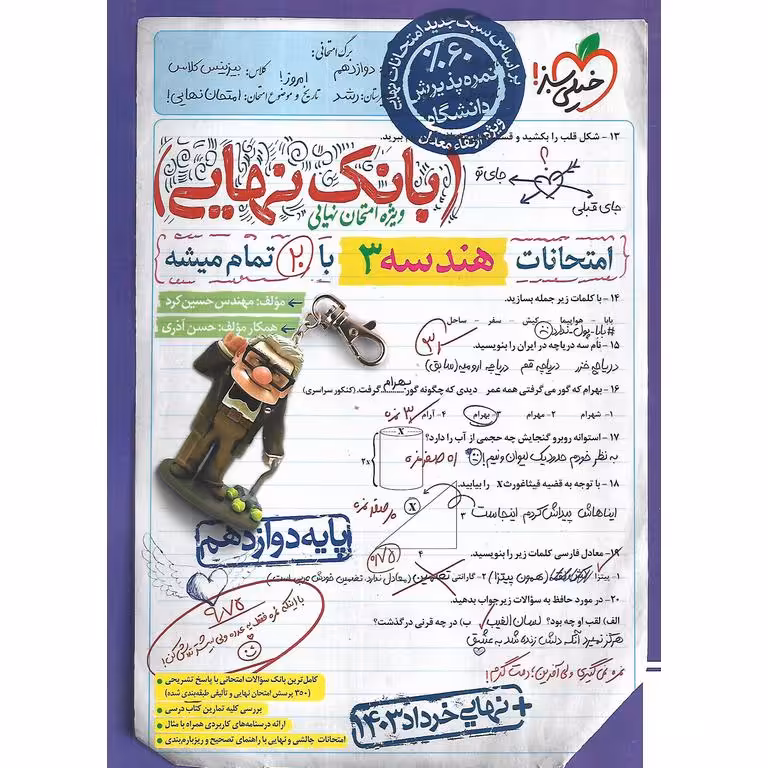 برگ امتحانی:
دوازدهم کلاس: بیزینس کلاس
امروز!
رشد تاریخ و موضوع امتحان: امتحان نهایی!
بر اساس سبک جدید امتحانات نهایی
%۶۰
نمره پذیرش
دانشگاه
ویژه ارتقاء معدل
خیلی سبز!
۱۳ - شکل قلب را بکشید و ببرید.
جای تو
جای قبلی
(بانک نهایی)
ویژه امتحان نهایی
{امتحانات هندسه ۳ با ۲۰ تمام میشه}
مؤلف: مهندس حسین کرد
همکار مؤلف: حسن آذری
۱۴ - با کلمات زیر جمله بسازید.
بابا - هواپیما - کیش - سفر - ساحل
#بابا-پول-ندارد
۱۵ - نام سه دریاچه در ایران را بنویسید.
دریاچه خزر دریاچه قم دریاچه ارومیه (سابق)
۱۶ - بهرام که گور می‌گرفتی همه عمر دیدی که چگونه گور بهرام گرفت. (کنکور سراسری)
۱- شهرام ۲- مهرام ۳- بهرام ۴- آرام
۱۷ - استوانه روبرو گنجایش چه حجمی از آب را دارد؟
به نظر خودم حدود یک لیوان و نیم!
X
۲x
۱۸ - با توجه به قضیه فیثاغورث x را بیابید.
ایناهاش پیداش کردم اینجاست
X
۳
۴
پایه دوازدهم
۱۹ - معادل فارسی کلمات زیر را بنویسید.
۱- پیتزا (همون پیتزا) ۲- گارانتی تضمین (معادل ندارد. تضمین خودش عربی است.)
۲۰ - در مورد حافظ به سؤالات زیر جواب بدهید.
الف) لقب او چه بود؟ لسان الغیب ب) در چه قرنی درگذشت؟
هرگز نمیرد آنکه دلش زنده شد به عشق
نمره نمی‌گیری ولی آفرین؛ دمت گرم!
۹/۷۵
کامل‌ترین بانک سؤالات امتحانی با پاسخ تشریحی
(۳۵۰ پرسش امتحان نهایی و تألیفی طبقه‌بندی شده)
بررسی کلیه تمارین کتاب درسی
ارائه درسنامه‌های کاربردی همراه با مثال
امتحانات چالشی و نهایی با راهنمای تصحیح و ریزبارم‌بندی
+ نهایی خرداد ۱۴۰۳